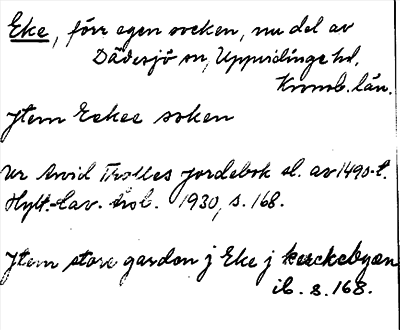 Eke, förr egen socken, nu del av
Dädesjö sn, Uppvidinge hd,
Kronob. län.
Jtem Eekee soken
Ur Arvid Trolles jordebok sl. av 1490-t.
Hylt.-Cav. årsb. 1930, s. 168.
Jtem store gardon j Eke j kerckebyæn
ib. s. 168.